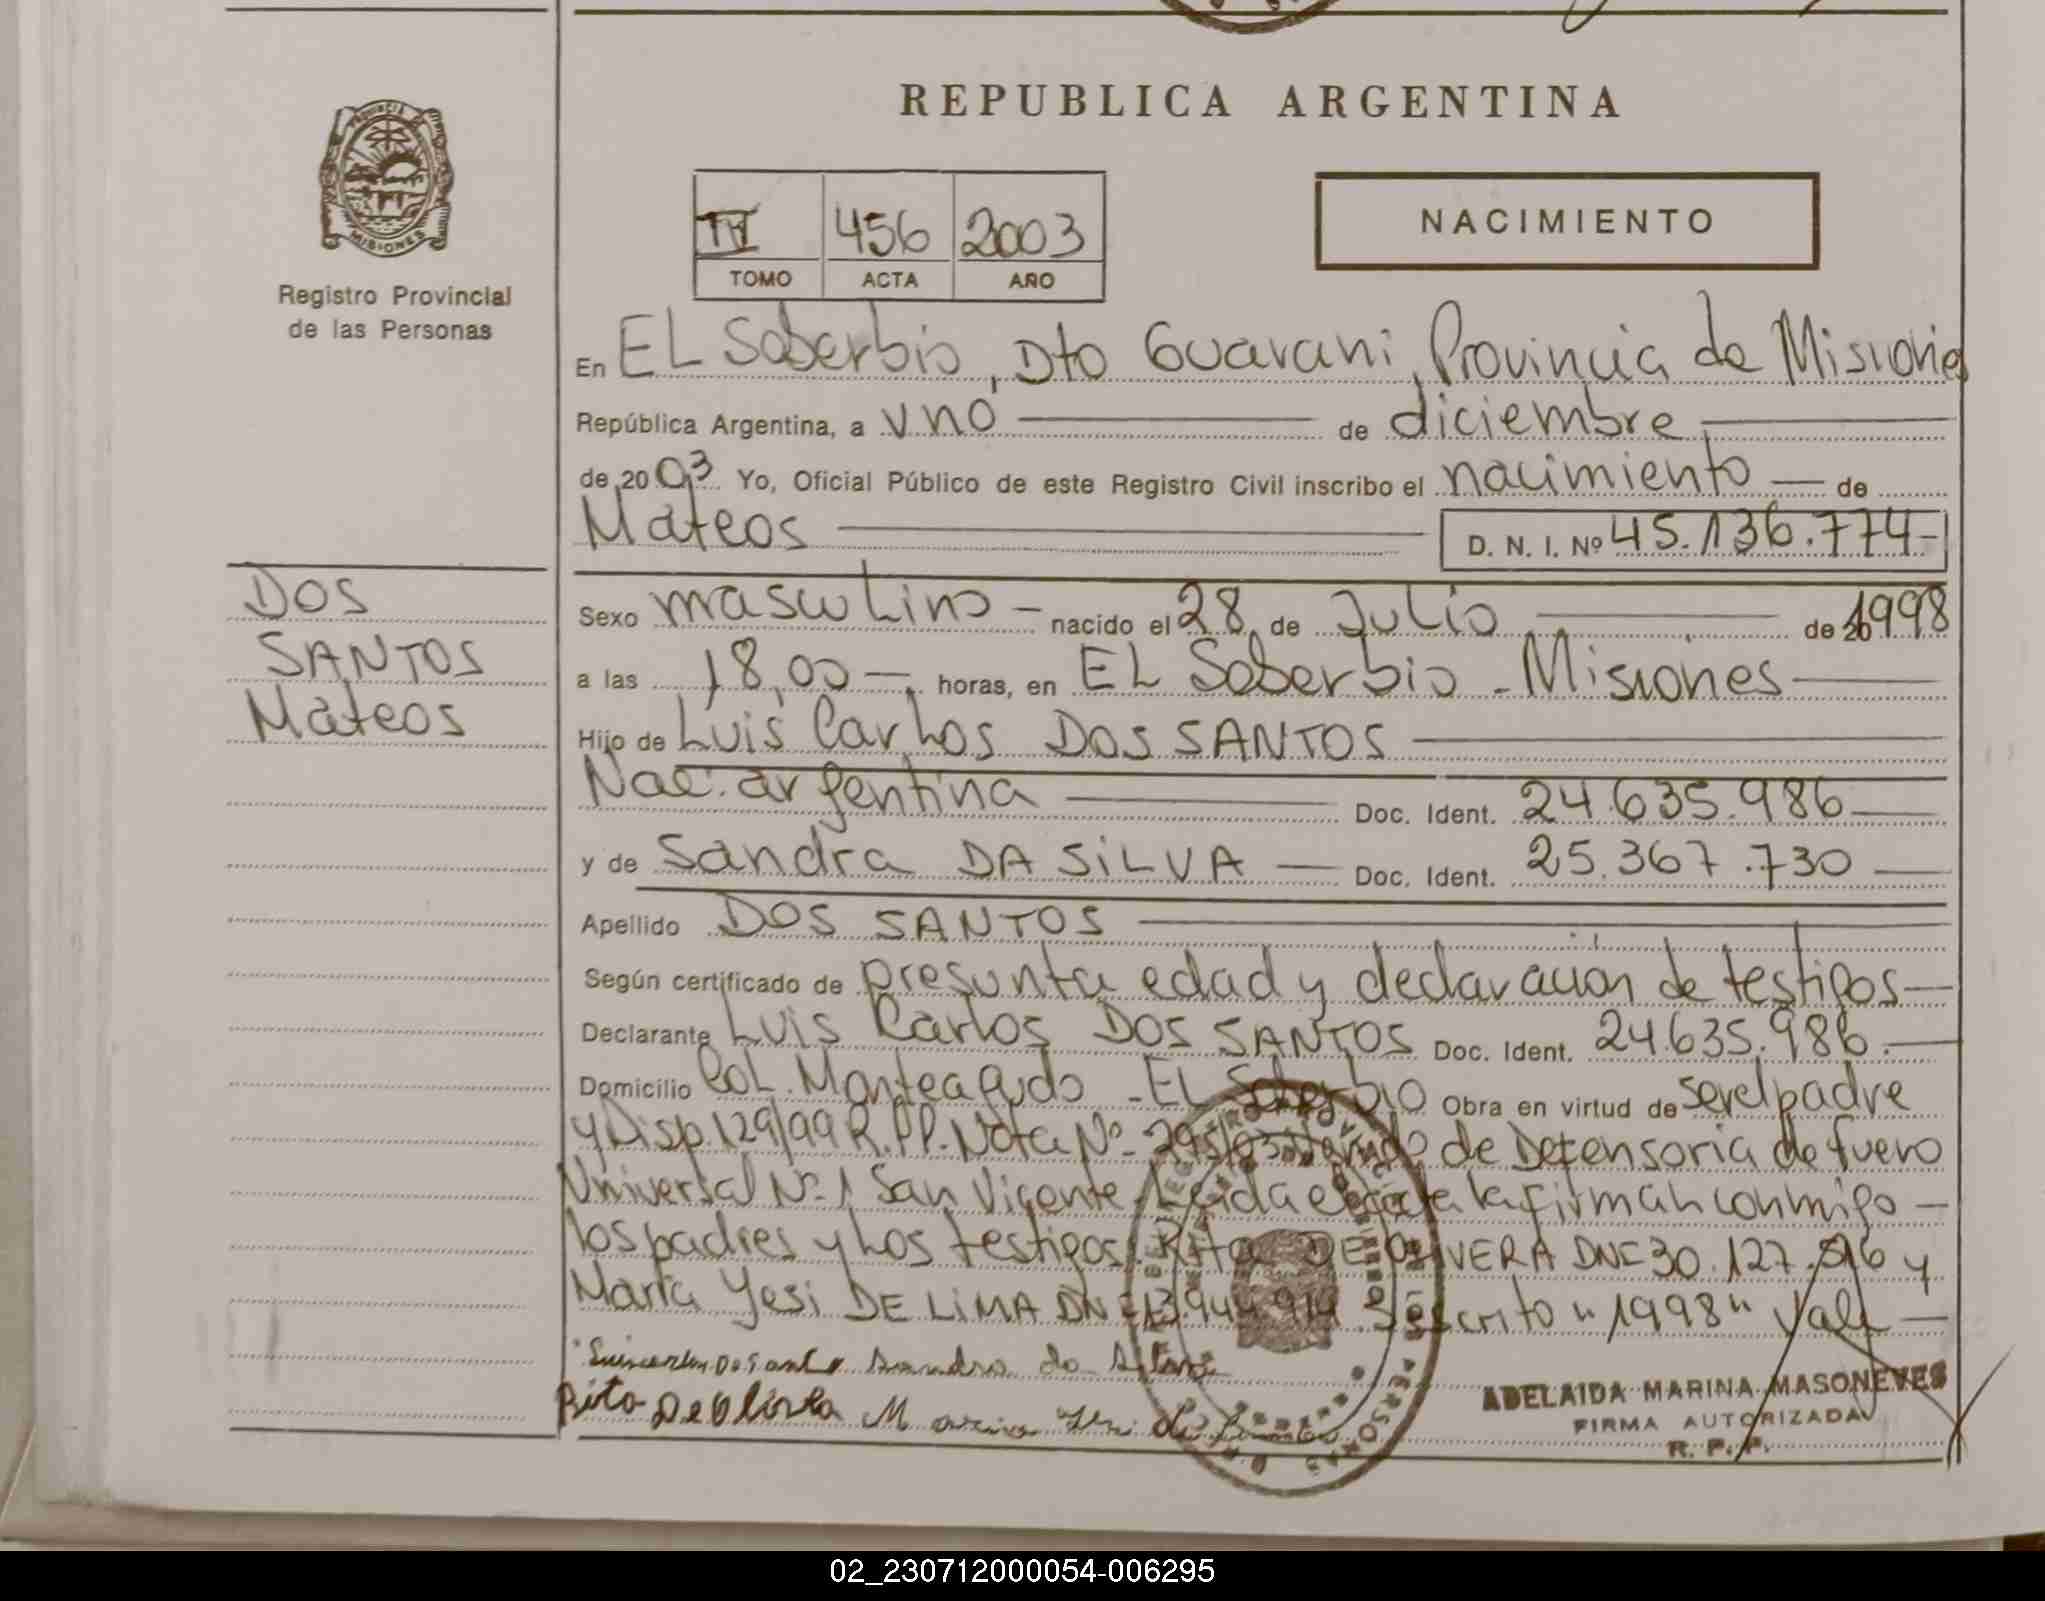 REPUBLICA ARGENTINA
PROVINCIA
MISIONES
Registro Provincial
de las Personas
456 2003
TOMO ACTA AÑO
NACIMIENTO
En EL Soberbio, Dto Guarani, Provincia de Misiones
República Argentina, a uno de diciembre
de 2003 Yo, Oficial Público de este Registro Civil inscribo el nacimiento de
Mateos D. N. I. Nº 45.136.774-
DOS
SANTOS
Mateos
Sexo masculino nacido el 28 de Julio de 1998
a las 18,00 horas, en EL Soberbio - Misiones
Hijo de Luis Carlos DOS SANTOS
Nac. argentina Doc. Ident. 24.635.986
y de Sandra DA SiLVA Doc. Ident. 25.367.730
Apellido DOS SANTOS
Según certificado de presunta edad y declaración de testigos
Declarante Luis Carlos DOS SANTOS Doc. Ident. 24.635.986.
Domicilio Col. Monteagudo - EL Soberbio Obra en virtud de ser el padre
y Disp. 129/99 R.PP. Nota Nº 295/03 de Defensoria de fuero
Universal Nº 1 San Vicente. Leida el acta la firman conmigo
los padres y los testigos: Rita DE OLIVERA DNI 30.127. y
Maria Yesi DE LIMA DNI 13.944.914. Sescrito "1998" Vale
Sandra da Silva
Rita De Olivera Maria Yesi de Lima
ADELAIDA MARINA MASONEVES
FIRMA AUTORIZADA
R. P. P.
02_230712000054-006295